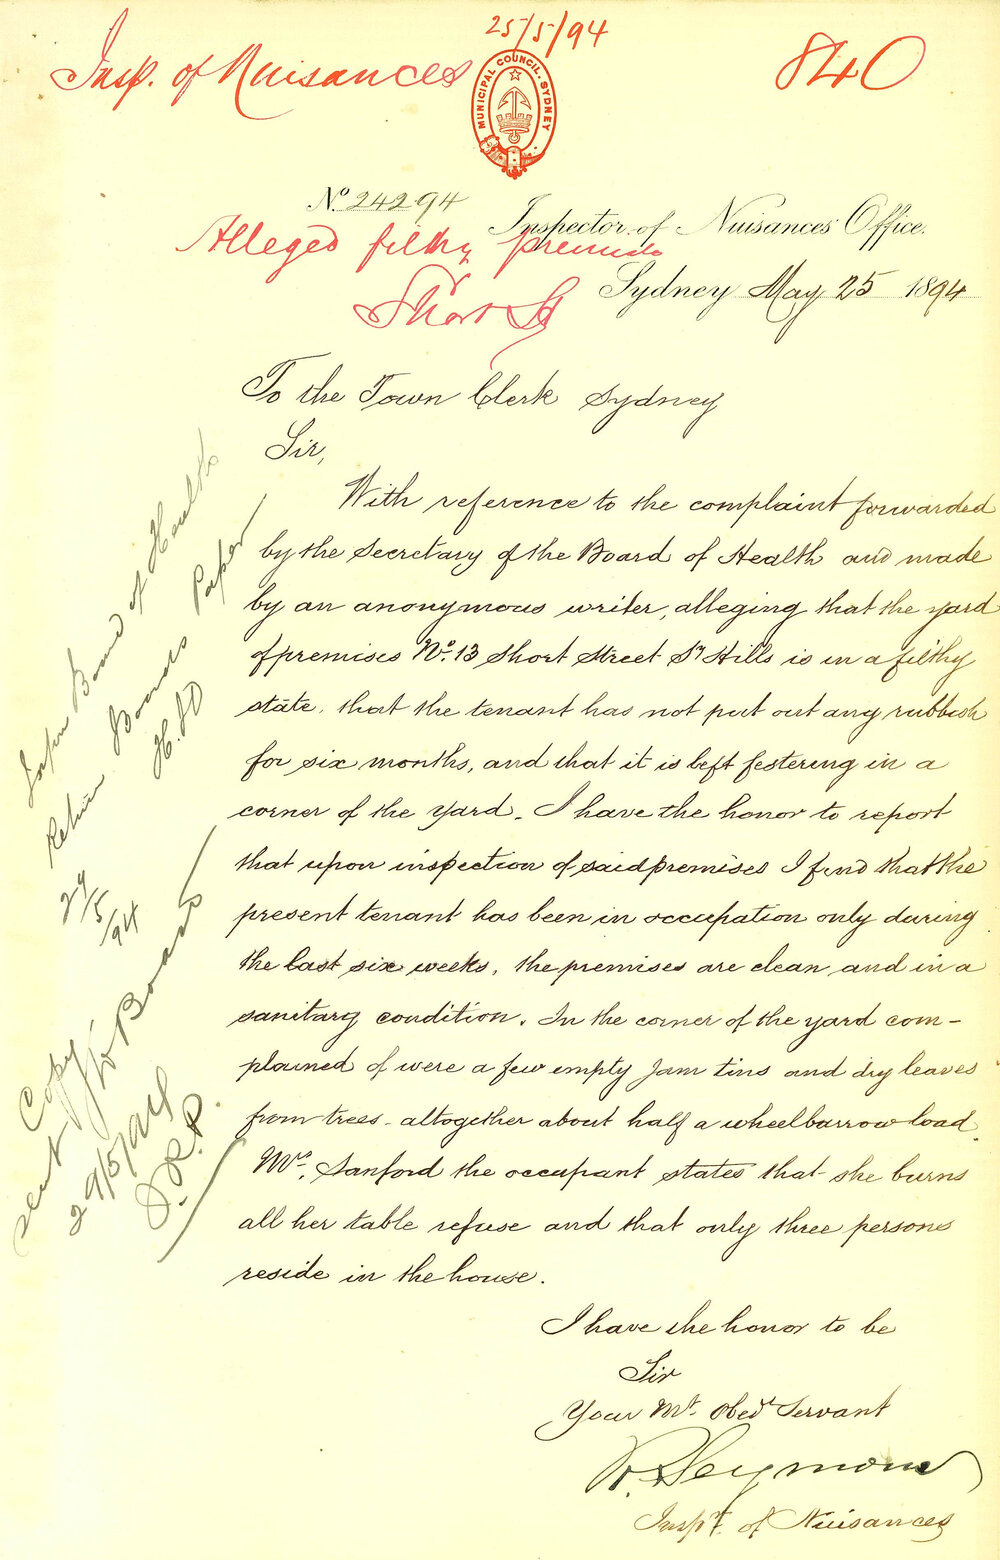 25/5/94
Insp. of Nuisances
840
MUNICIPAL COUNCIL. SYDNEY
No. 24294
Inspector of Nuisances' Office.
Alleged filthy premises
Short St
Sydney May 25 1894
To the Town Clerk Sydney
Sir,
With reference to the complaint forwarded
by the Secretary of the Board of Health and made
by an anonymous writer, alleging that the yard
of premises No. 13 Short Street Sy Hills is in a filthy
state, that the tenant has not put out any rubbish
for six months, and that it is left festering in a
corner of the yard. I have the honor to report
that upon inspection of said premises I find that the
present tenant has been in occupation only during
the last six weeks, the premises are clean and in a
sanitary condition. In the corner of the yard com-
plained of were a few empty Jam tins and dry leaves
from trees - altogether about half a wheelbarrow load.
Mrs. Sanford the occupant states that she burns
all her table refuse and that only three persons
reside in the house.
I have the honor to be
Sir
Your Mt. Obedt Servant
R. Seymour
Inspr. of Nuisances
Inform Board of Health
Return Boards Papers
H.J.D
29/5/94
Copy
sent to Board
29/5/94